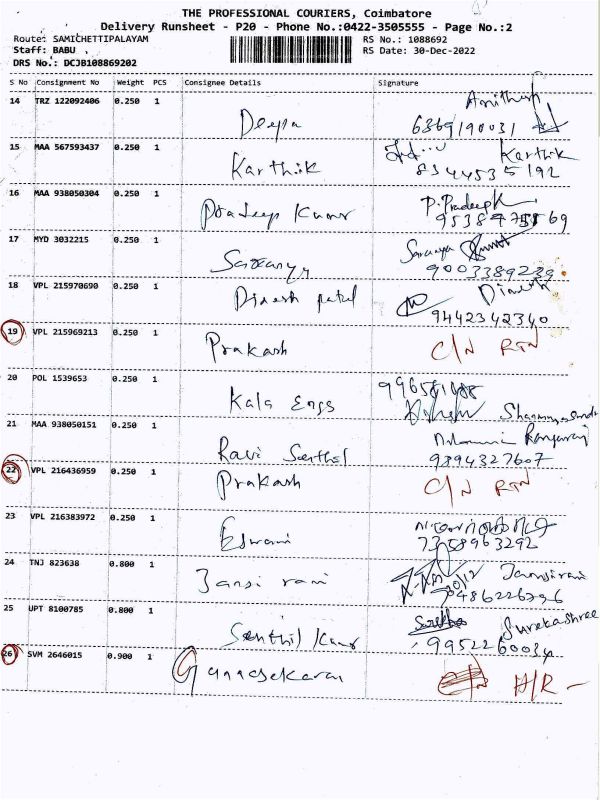 THE PROFESSIONAL COURIERS, Coimbatore
Delivery Runsheet - P20 - Phone No.:0422-3505555 - Page No.:2
Route: SAMICHETTIPALAYAM RS No.: 1088692
Staff: BABU RS Date: 30-Dec-2022
DRS No.: DCJB108869202
S No Consignment No Weight PCS Consignee Details Signature
14 TRZ 122092406 0.250 1
Deepa 6369190031
15 MAA 567593437 0.250 1 Karthik
Karthik 8344535192
16 MAA 938050304 0.250 1 P.Pradeep K
Pradeep Kumar
17 MYD 3032215 0.250 1 Saranya
9003389239
18 VPL 215970690 0.250 1 Dinesh
Dinesh patel 9442342340
19 VPL 215969213 0.250 1
Prakash C/N RTN
20 POL 1539653 0.250 1
Kala Engs
21 MAA 938050151 0.250 1
Ravi Senthil 9894327607
22 VPL 216436959 0.250 1 Prakash C/N RTN
23 VPL 216383972 0.250 1
Eswari 7358963292
24 TNJ 823638 0.800 1 Jansirani
Jansi rani
25 UPT 8100785 0.800 1 Surekashree
Senthil Kumar 9952260034
26 SVM 2646015 0.900 1
Gunasekaran H/R -